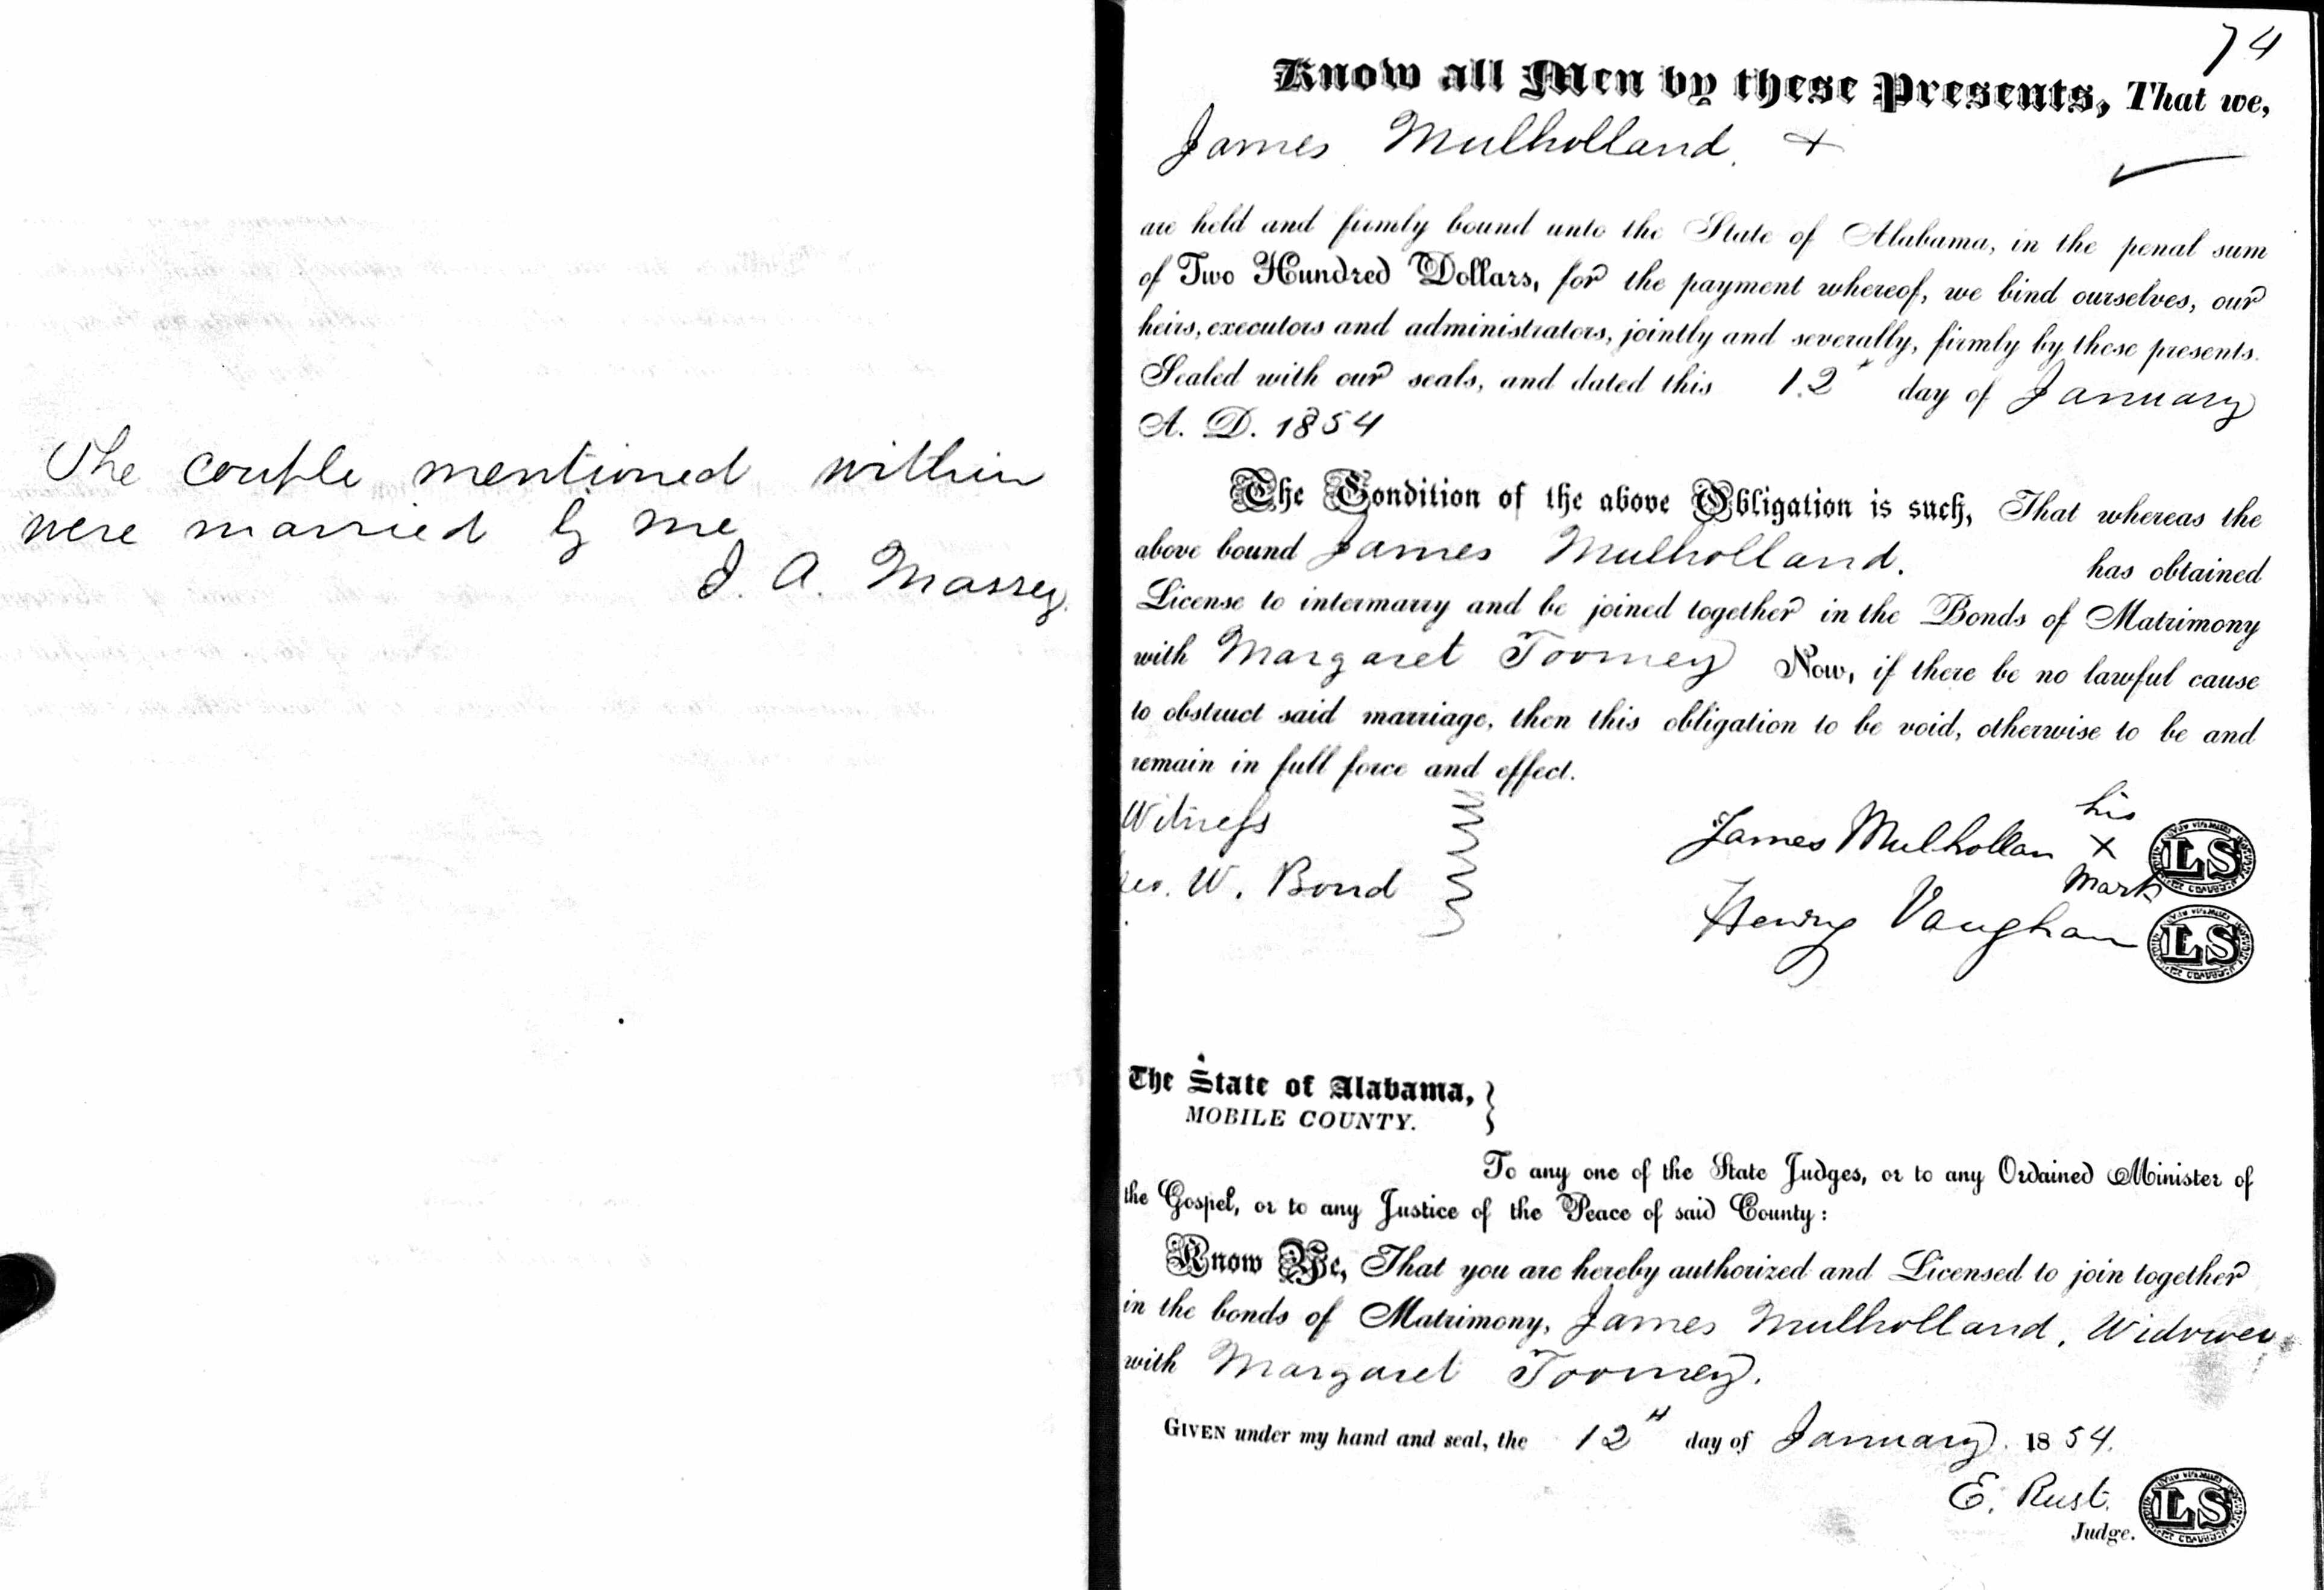 The couple mentioned within
were married by me
J. A. Massey.
74
Know all Men by these Presents, That we,
James Mulholland. +
are held and firmly bound unto the State of Alabama, in the penal sum
of Two Hundred Dollars, for the payment whereof, we bind ourselves, our
heirs, executors and administrators, jointly and severally, firmly by these presents.
Sealed with our seals, and dated this 12" day of January
A. D. 1854
The Condition of the above Obligation is such, That whereas the
above bound James Mulholland. has obtained
License to intermarry and be joined together in the Bonds of Matrimony
with Margaret Toomey Now, if there be no lawful cause
to obstruct said marriage, then this obligation to be void, otherwise to be and
remain in full force and effect.
Witness
W. Bond
James Mulhollan his
x
mark
LS
Henry Vaughan
LS
The State of Alabama, }
MOBILE COUNTY.
To any one of the State Judges, or to any Ordained Minister of
the Gospel, or to any Justice of the Peace of said County:
Know Ye, That you are hereby authorized and Licensed to join together
in the bonds of Matrimony, James Mulholland, Widower
with Margaret Toomey.
GIVEN under my hand and seal, the 12" day of January. 1854.
E. Rust.
LS
Judge.